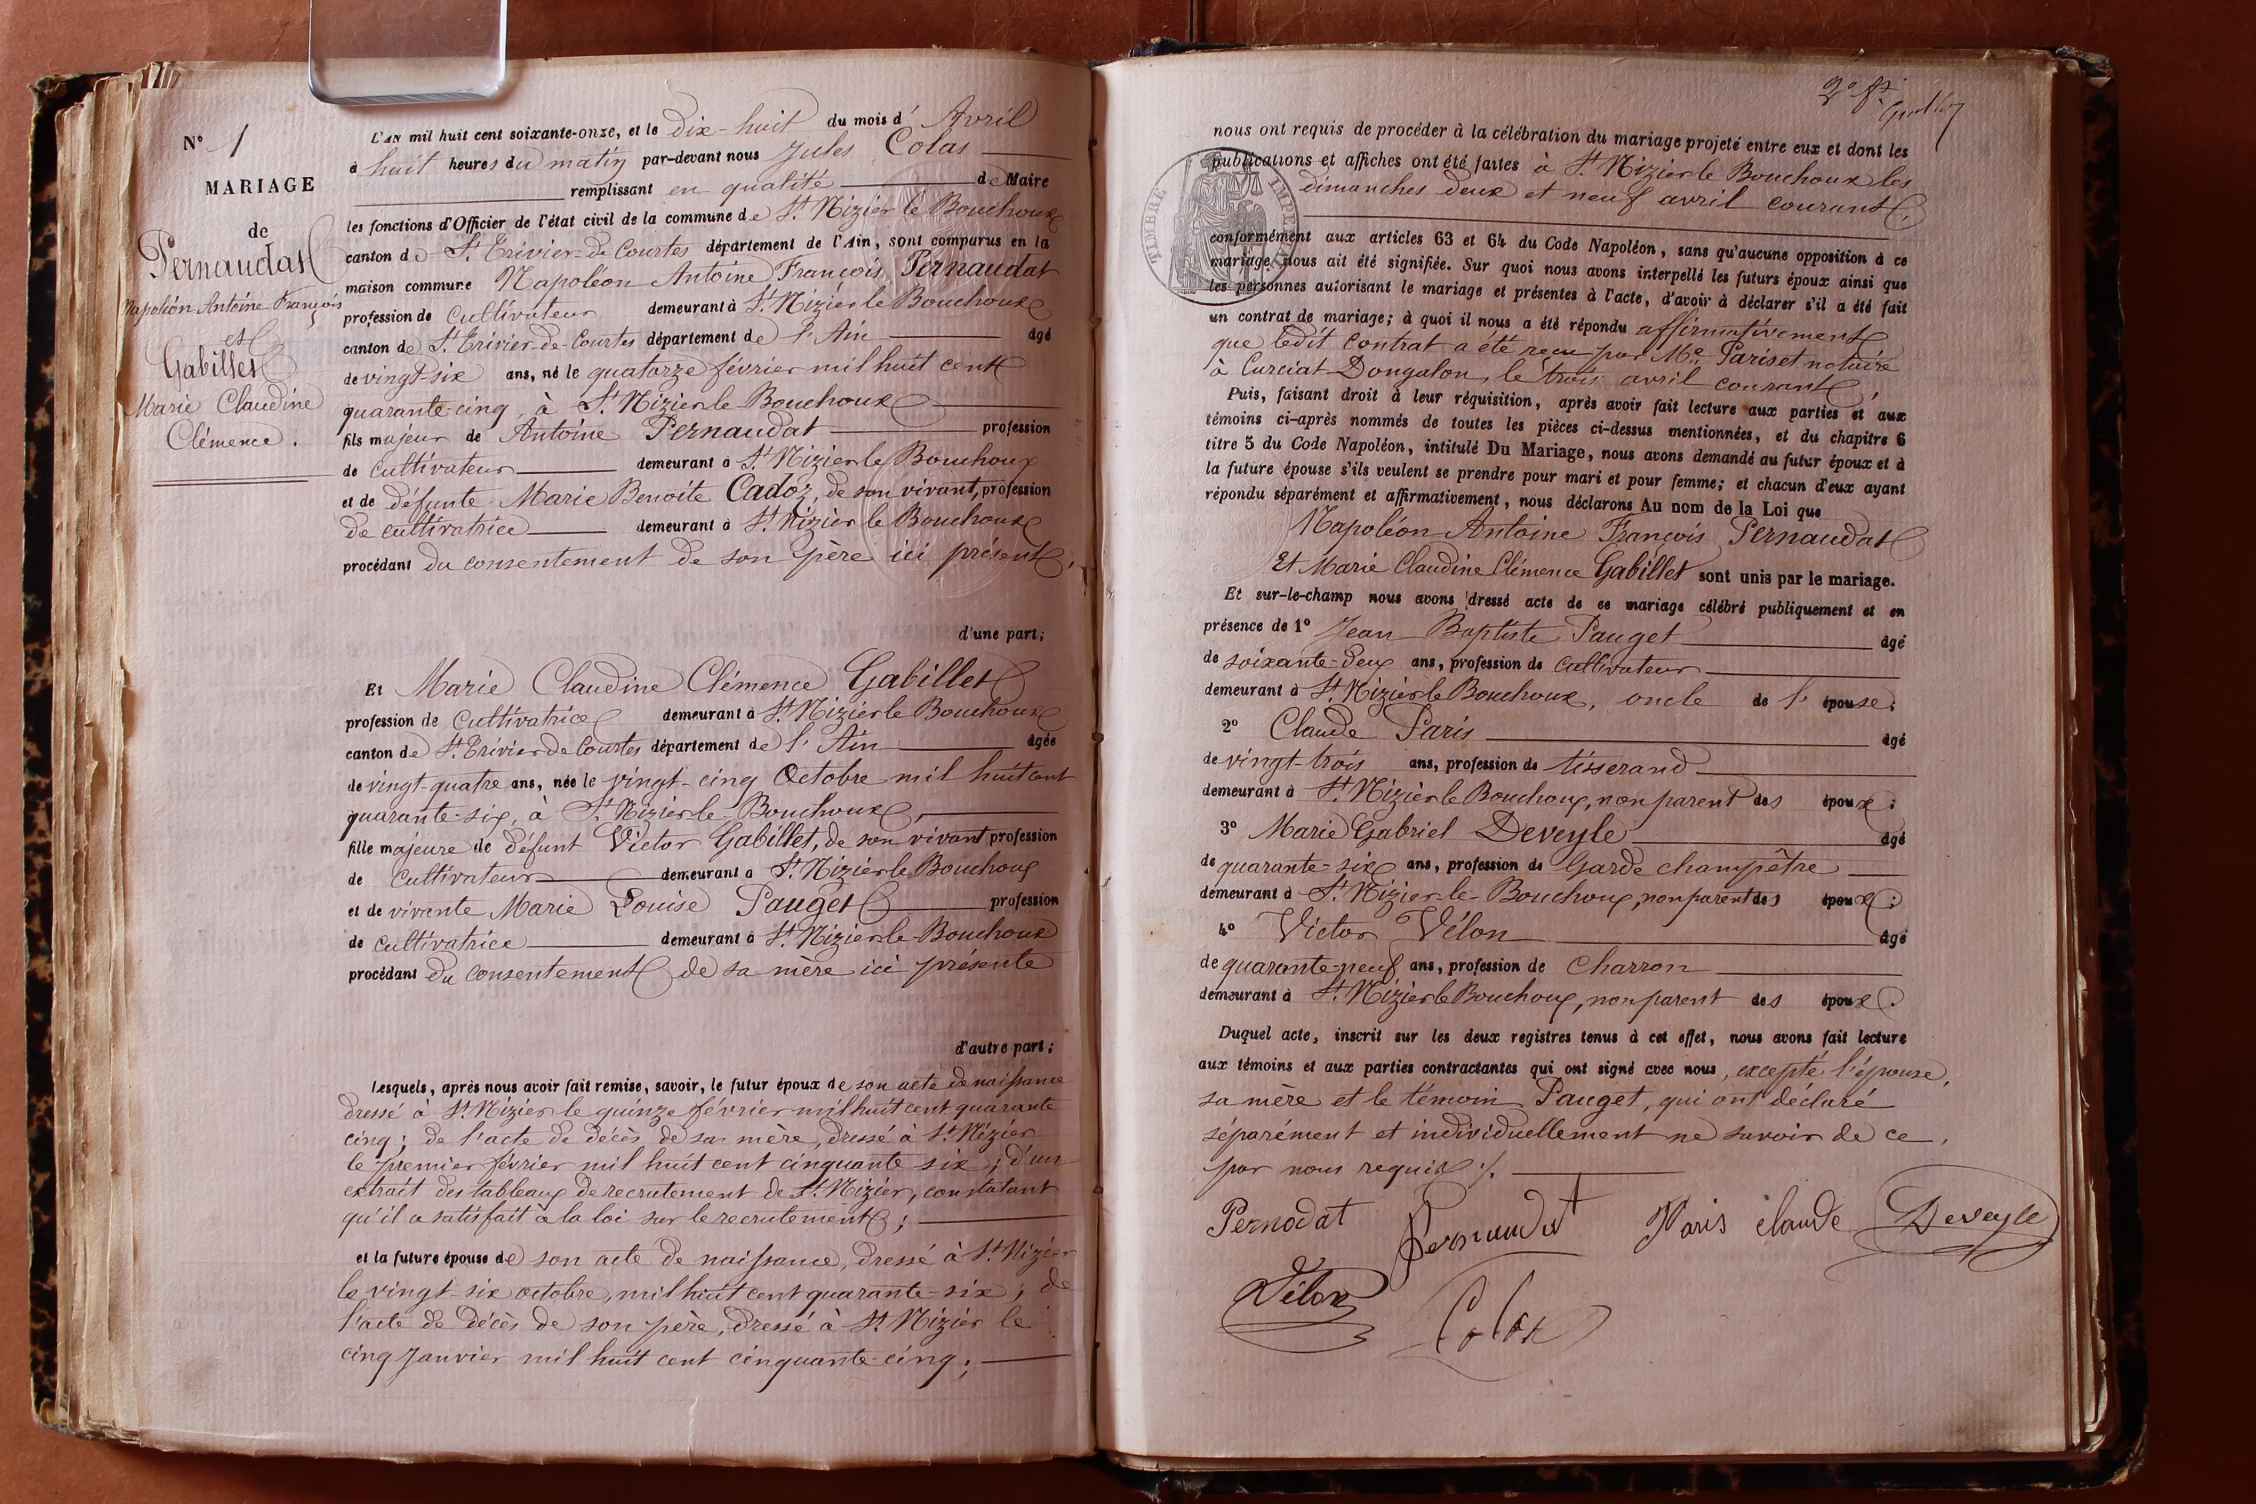 N° 1
MARIAGE
de
Pernaudat
Napoléon Antoine François
et
Gabillet
Marie Claudine
Clémence.
L'AN mil huit cent soixante-onze, et le dix-huit du mois d' Avril
à huit heures du matin par-devant nous Jules Colas
remplissant en qualité de Maire
les fonctions d'Officier de l'état civil de la commune de St. Nizier le Bouchoux
canton de St. Trivier-de-Courtes département de l'Ain, sont comparus en la
maison commune Napoléon Antoine François Pernaudat
profession de cultivateur demeurant à St. Nizier le Bouchoux
canton de St. Trivier-de-Courtes département de l'Ain âgé
de vingt-six ans, né le quatorze février mil huit cent
quarante-cinq, à St. Nizier le Bouchoux
fils majeur de Antoine Pernaudat profession
de cultivateur demeurant à St. Nizier le Bouchoux
et de défunte Marie Benoite Cadoz, de son vivant, profession
de cultivatrice demeurant à St. Nizier le Bouchoux
procédant du consentement de son père ici présent,
d'une part;
Et Marie Claudine Clémence Gabillet
profession de cultivatrice demeurant à St. Nizier le Bouchoux
canton de St. Trivier de Courtes département de l'Ain âgée
de vingt-quatre ans, née le vingt-cinq Octobre mil huit cent
quarante-six, à St. Nizier le Bouchoux,
fille majeure de défunt Victor Gabillet, de son vivant profession
de cultivateur demeurant à St. Nizier le Bouchoux
et de vivante Marie Louise Pauget profession
de cultivatrice demeurant à St. Nizier le Bouchoux
procédant du consentement de sa mère ici présente
d'autre part;
Lesquels, après nous avoir fait remise, savoir, le futur époux de son acte de naissance
dressé à St. Nizier le quinze février mil huit cent quarante
cinq; de l'acte de décès de sa mère, dressé à St. Nizier
le premier février mil huit cent cinquante six; d'un
extrait des tableaux de recrutement de St. Nizier, constatant
qu'il a satisfait à la loi sur le recrutement;
et la future épouse de son acte de naissance, dressé à St. Nizier
le vingt-six octobre mil huit cent quarante-six; de
l'acte de décès de son père, dressé à St. Nizier le
cinq Janvier mil huit cent cinquante-cinq;
2e ft
nous ont requis de procéder à la célébration du mariage projeté entre eux et dont les
publications et affiches ont été faites à St. Nizier le Bouchoux les
dimanches deux et neuf avril courant,
TIMBRE IMPERIAL
conformément aux articles 63 et 64 du Code Napoléon, sans qu'aucune opposition à ce
mariage nous ait été signifiée. Sur quoi nous avons interpellé les futurs époux ainsi que
les personnes autorisant le mariage et présentes à l'acte, d'avoir à déclarer s'il a été fait
un contrat de mariage; à quoi il nous a été répondu affirmativement
que ledit contrat a été reçu par Me. Pariset notaire
à Curciat-Dongalon, le trois avril courant,
Puis, faisant droit à leur réquisition, après avoir fait lecture aux parties et aux
témoins ci-après nommés de toutes les pièces ci-dessus mentionnées, et du chapitre 6
titre 5 du Code Napoléon, intitulé Du Mariage, nous avons demandé au futur époux et à
la future épouse s'ils veulent se prendre pour mari et pour femme; et chacun d'eux ayant
répondu séparément et affirmativement, nous déclarons Au nom de la Loi que
Napoléon Antoine François Pernaudat
Et Marie Claudine Clémence Gabillet sont unis par le mariage.
Et sur-le-champ nous avons dressé acte de ce mariage célébré publiquement et en
présence de 1° Jean Baptiste Pauget âgé
de soixante-deux ans, profession de cultivateur
demeurant à St. Nizier le Bouchoux, oncle de l'épouse;
2° Claude Paris âgé
de vingt-trois ans, profession de tisserand
demeurant à St. Nizier le Bouchoux, non parent des époux;
3° Marie Gabriel Deveyle âgé
de quarante-six ans, profession de Garde champêtre
demeurant à St. Nizier-le-Bouchoux, non parent des époux;
4° Victor Vélon âgé
de quarante-neuf ans, profession de Charron
demeurant à St. Nizier le Bouchoux, non parent des époux.
Duquel acte, inscrit sur les deux registres tenus à cet effet, nous avons fait lecture
aux témoins et aux parties contractantes qui ont signé avec nous, excepté l'épouse,
sa mère et le témoin Pauget, qui ont déclaré
séparément et individuellement ne savoir de ce
par nous requis ./.
Pernodat Pernaudat Paris claude Deveyle
Vélon Colas